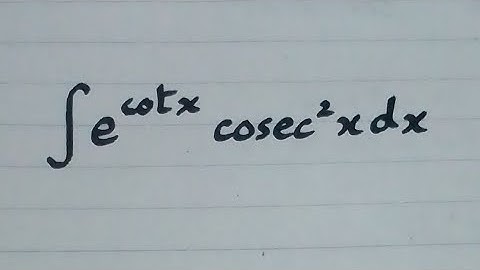 ∫ e^{cot x} cosec² x dx